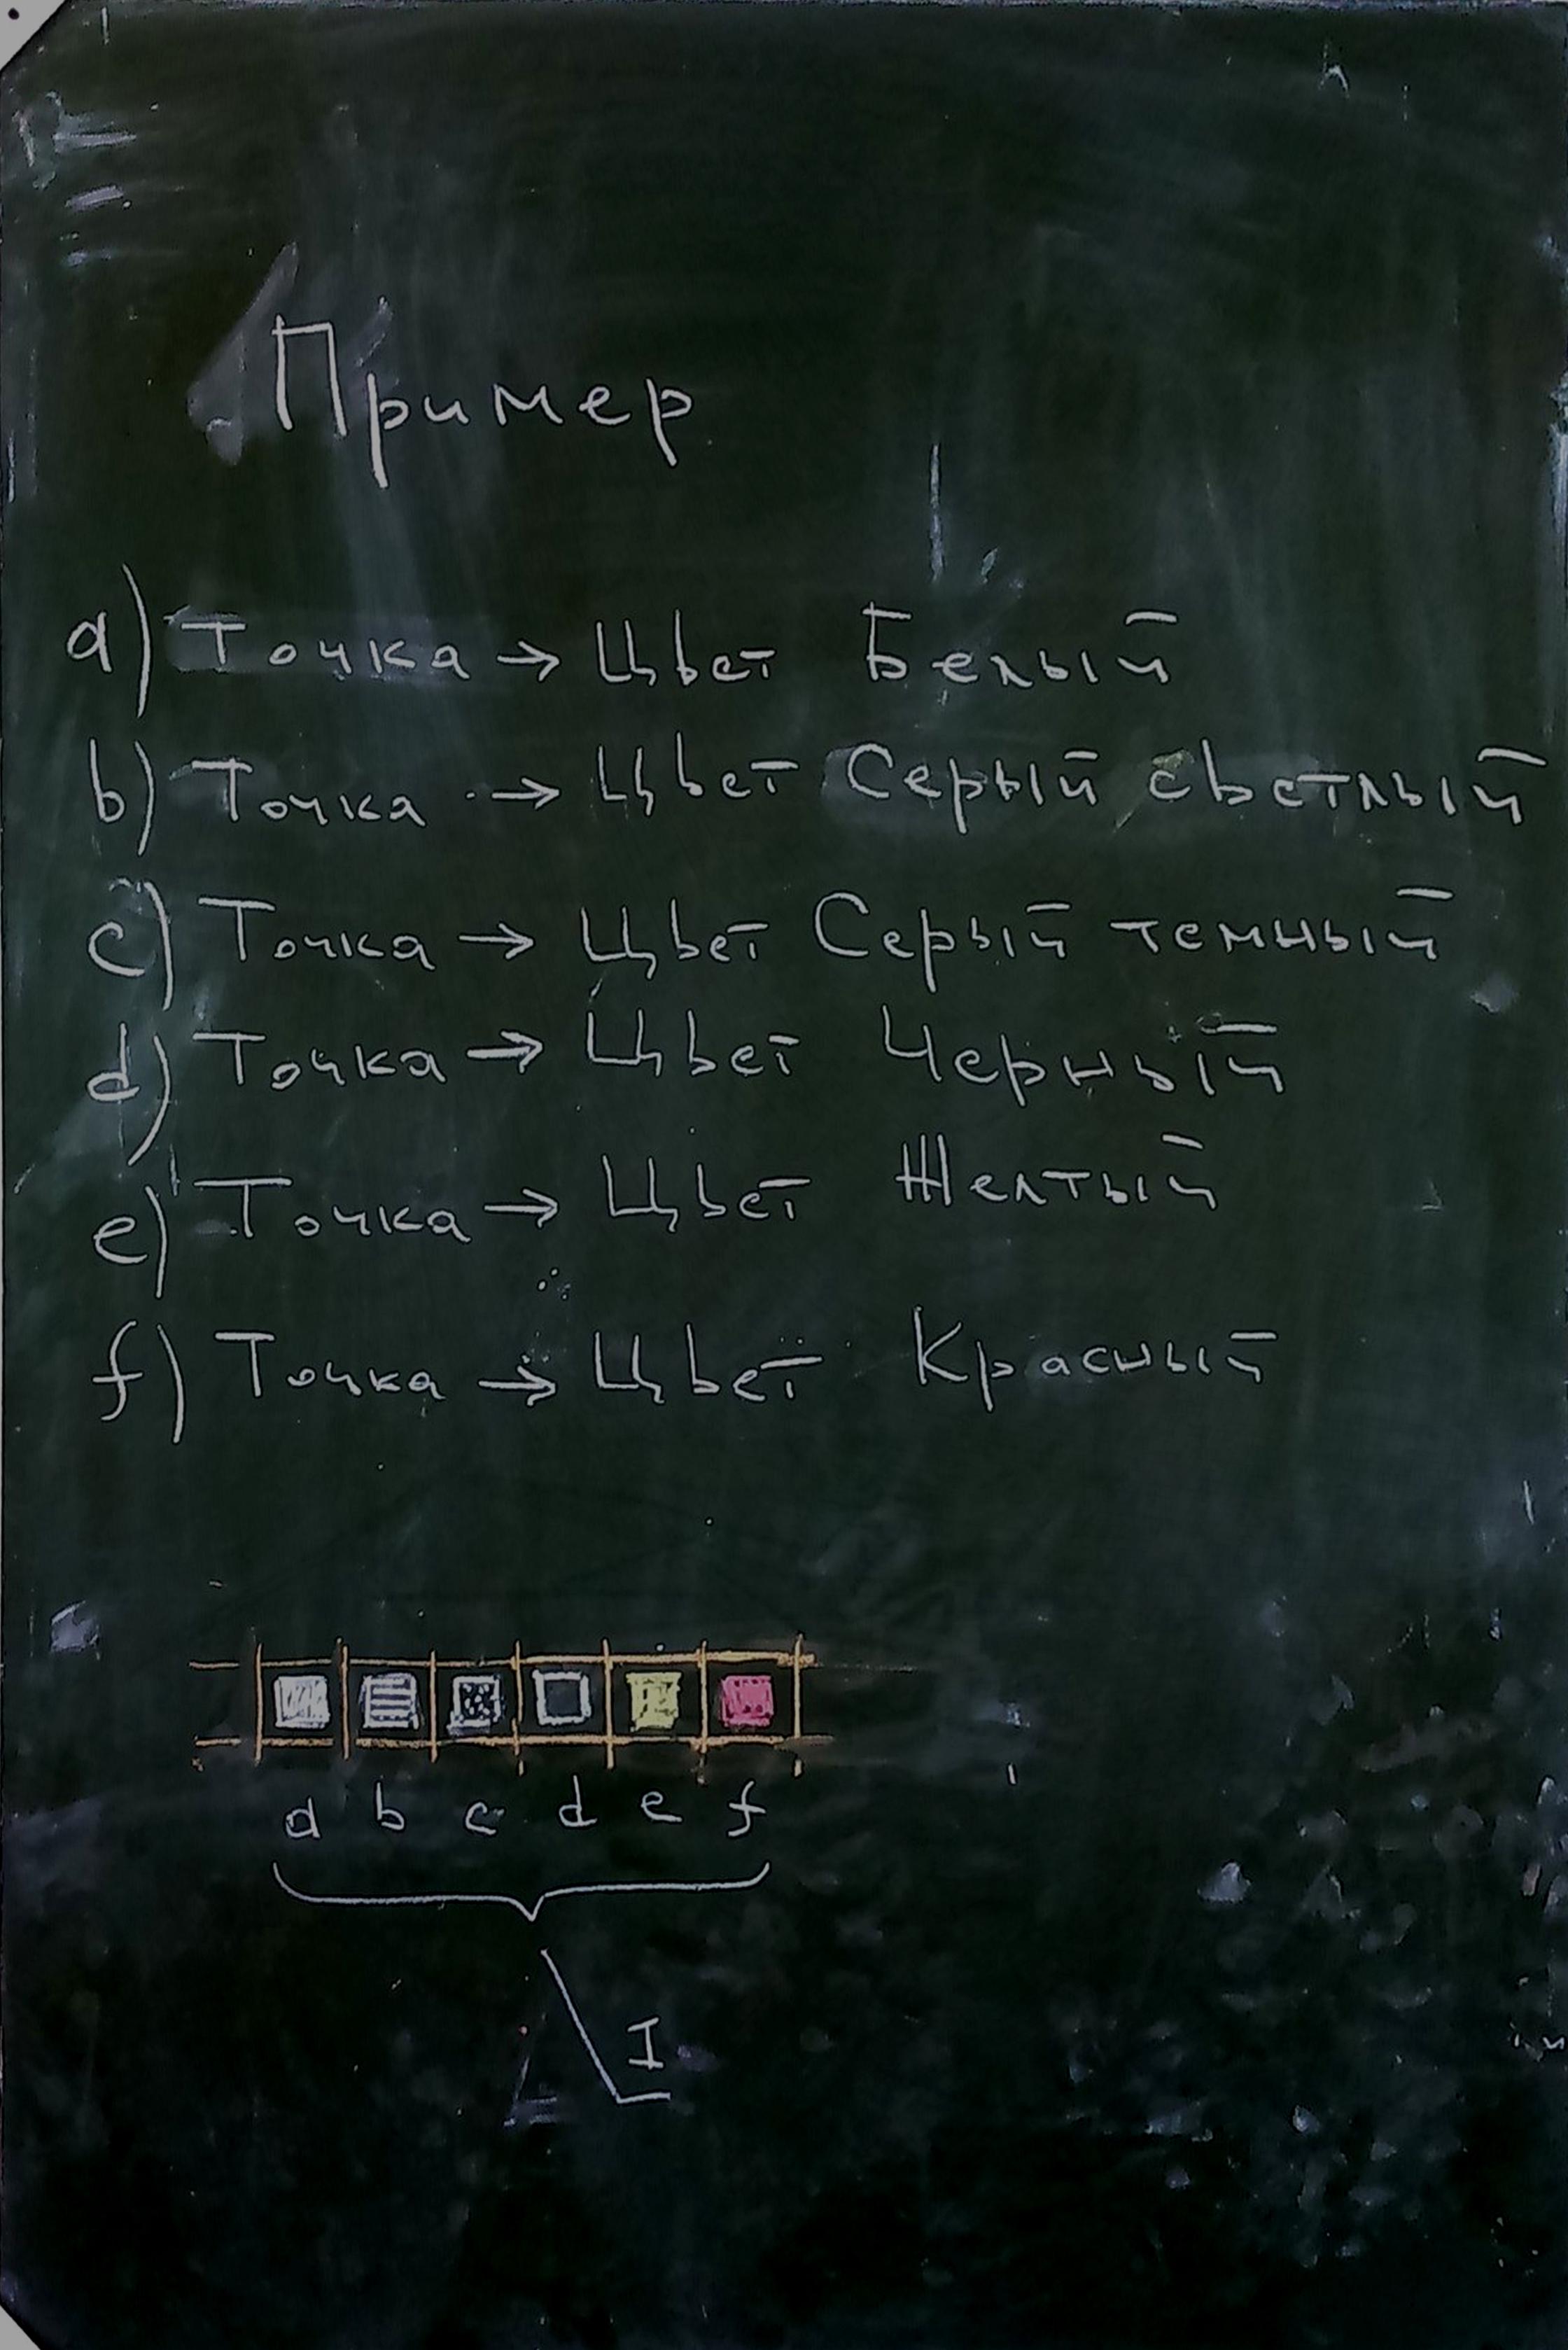 Пример
a) Точка → Цвет Белый
b) Точка → Цвет Серый светлый
c) Точка → Цвет Серый темный
d) Точка → Цвет Черный
e) Точка → Цвет Желтый
f) Точка → Цвет Красный
a b c d e f
I